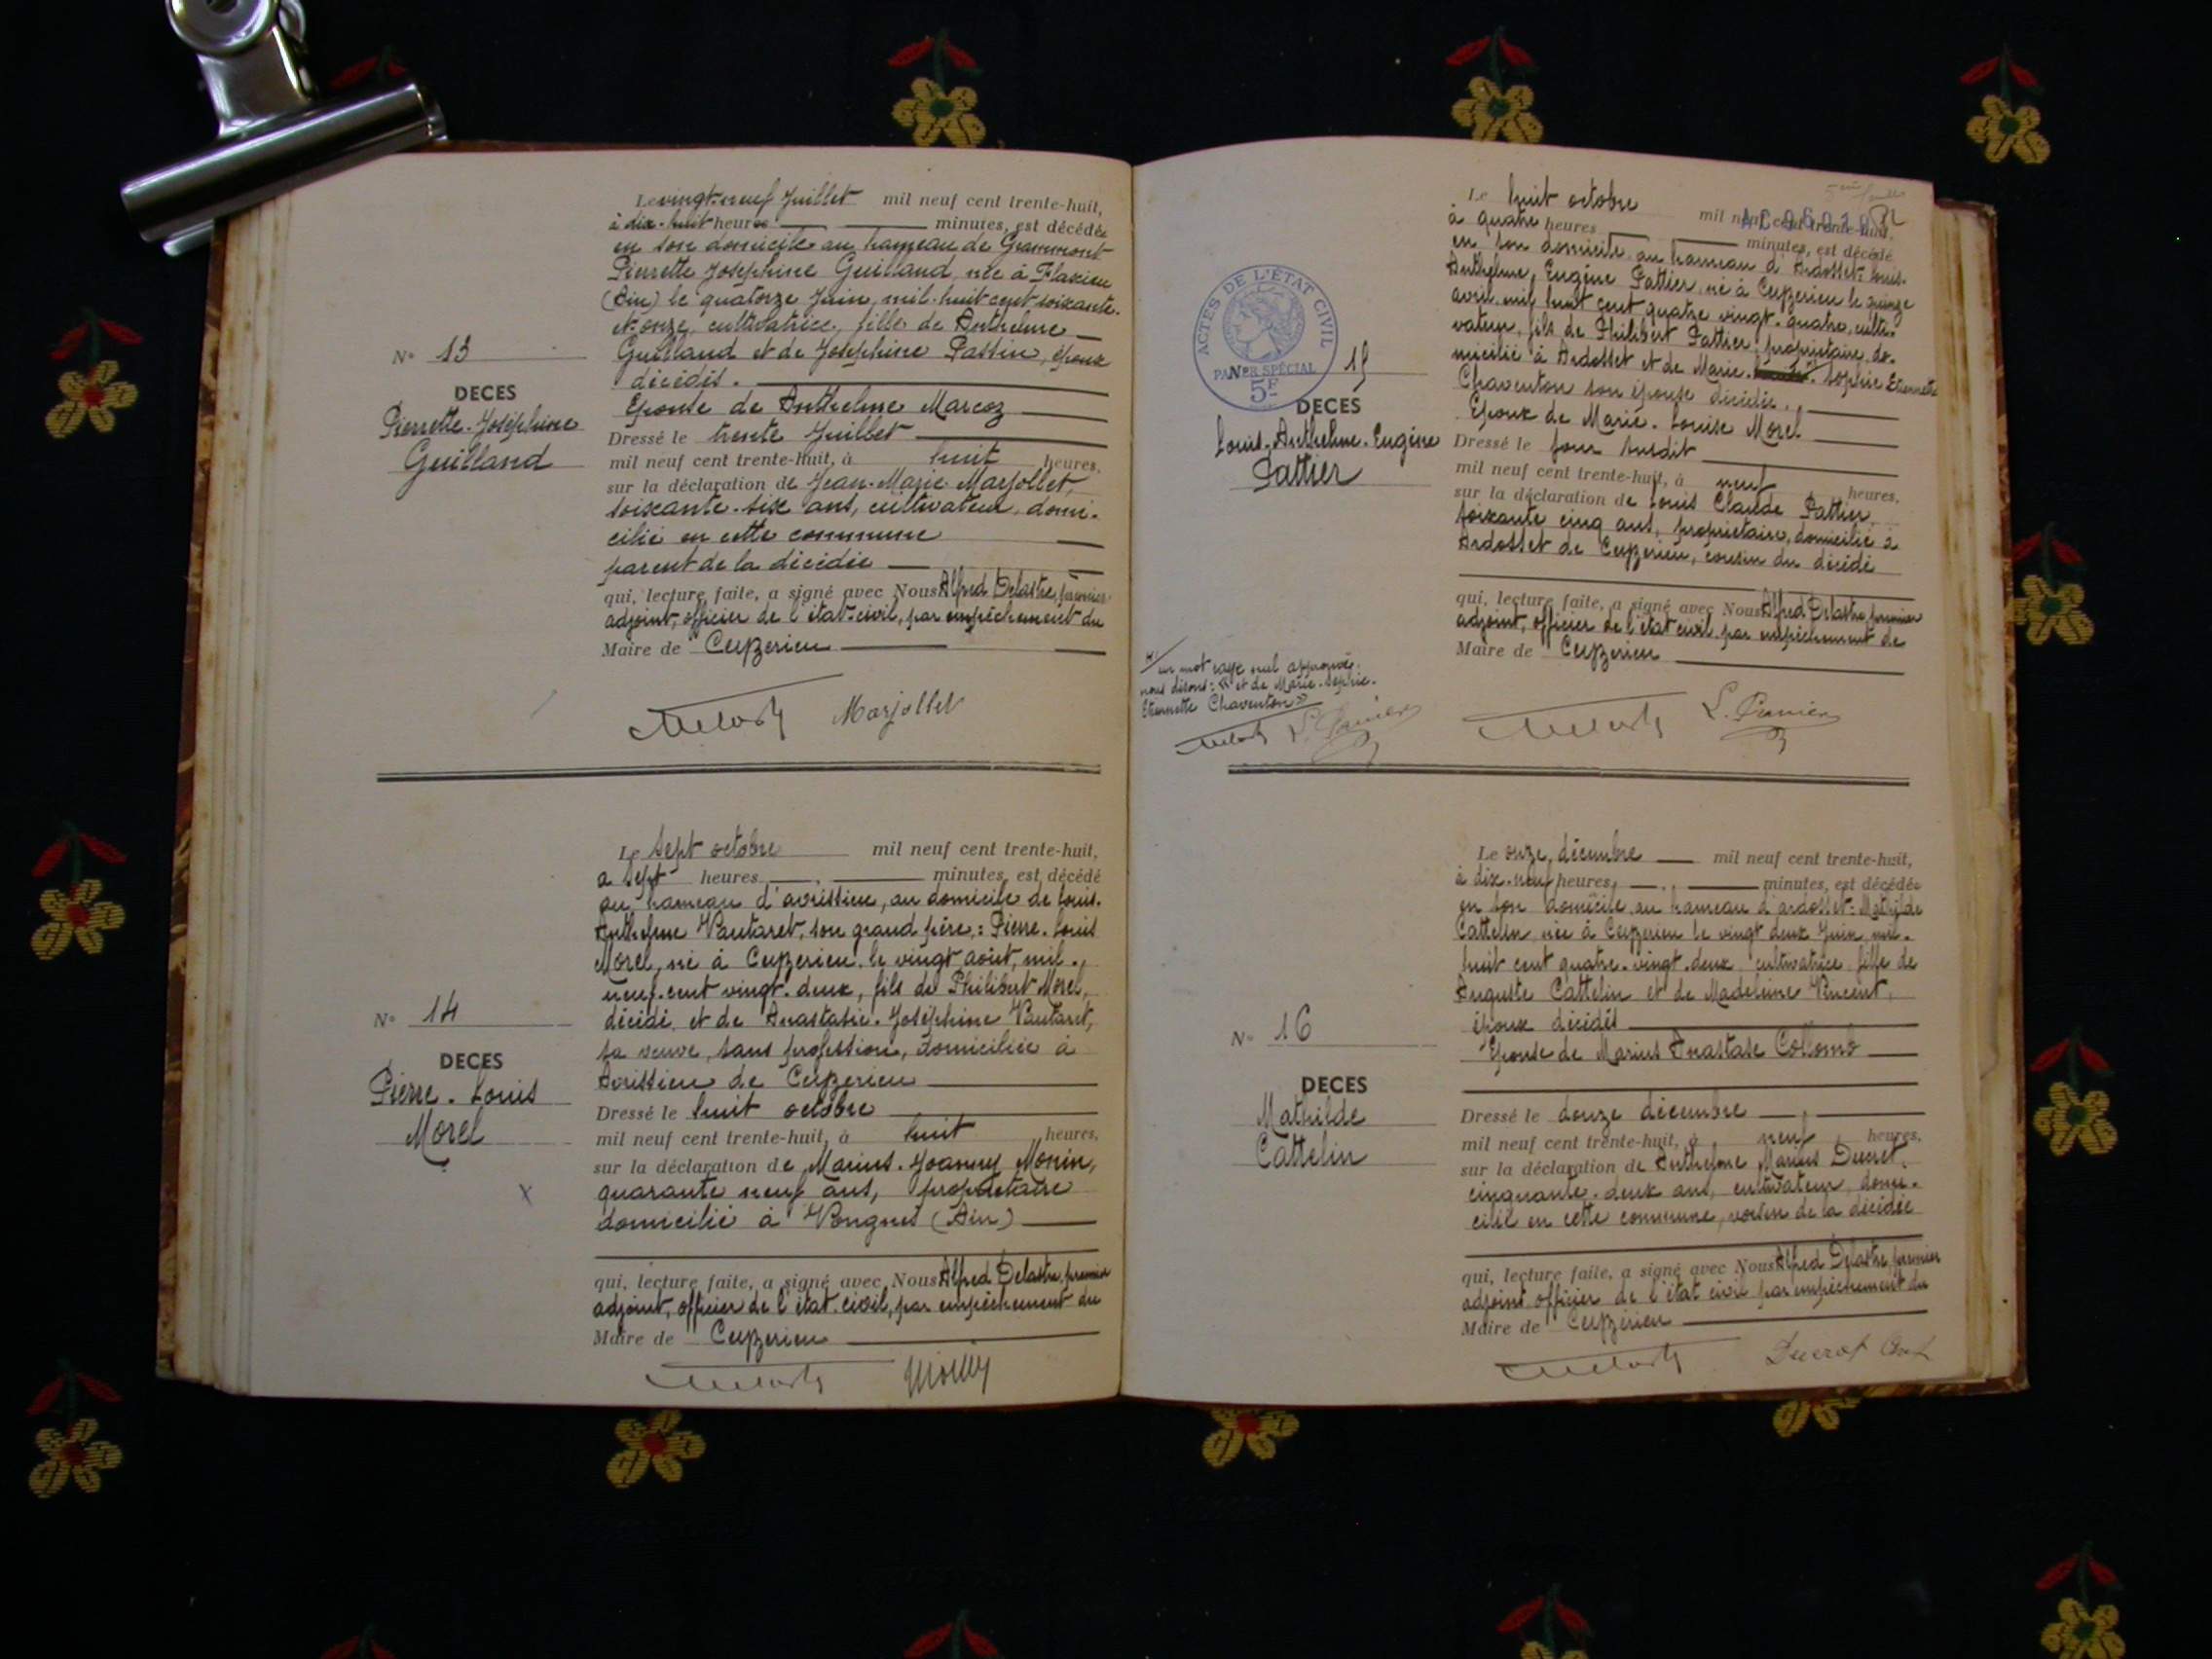 Le vingt-neuf Juillet mil neuf cent trente-huit,
à dix-huit heures minutes, est décédée
en son domicile au hameau de Grammont
Pierrette Joséphine Guilland, née à Flaxieu
(Ain) le quatorze Juin, mil-huit cent soixante-
et-onze, cultivatrice, fille de Anthelme
Guilland et de Joséphine Passin, époux
décédés.
Epouse de Anthelme Marcoz
Dressé le trente Juillet
mil neuf cent trente-huit, à huit heures,
sur la déclaration de Jean-Marie Marjollet,
soixante-six ans, cultivateur, domi-
cilié en cette commune
parent de la décédée
qui, lecture faite, a signé avec Nous Alfred Delastre, premier
adjoint, officier de l'état-civil, par empêchement du
Maire de Ceyzerieu
N° 13
DECES
Pierrette-Joséphine
Guilland
Marjollet
Le Sept octobre mil neuf cent trente-huit,
a Sept heures minutes, est décédé
au hameau d'avrissieu, au domicile de Louis-
Anthelme Vautaret, son grand père: Pierre-Louis
Morel, né à Ceyzerieu, le vingt août, mil-
neuf-cent vingt-deux, fils de Philibert Morel,
décédé, et de Anastasie-Joséphine Vautaret,
sa veuve, sans profession, domiciliée à
Avrissieu de Ceyzerieu
Dressé le huit octobre
mil neuf cent trente-huit, à huit heures,
sur la déclaration de Marius-Joanny Monin,
quarante neuf ans, propriétaire
domicilié à Vongnes (Ain)
qui, lecture faite, a signé avec Nous Alfred Delastre, premier
adjoint, officier de l'état-civil, par empêchement du
Maire de Ceyzerieu
N° 14
DECES
Pierre-Louis
Morel
Le huit octobre mil neuf cent trente-huit,
à quatre heures minutes, est décédé
en son domicile au hameau d'Ardosset: Louis-
Anthelme, Eugène Pattier, né à Ceyzerieu le quinze
avril mil huit cent quatre vingt-quatre, culti-
vateur, fils de Philibert Pattier, propriétaire, do-
micilié à Ardosset et de Marie-Sophie Etiennette
Chaventon son épouse décédée.
Epoux de Marie-Louise Morel
Dressé le jour susdit
mil neuf cent trente-huit, à neuf heures,
sur la déclaration de Louis Claude Pattier,
soixante cinq ans, propriétaire, domicilié à
Ardosset de Ceyzerieu, cousin du décédé
qui, lecture faite, a signé avec Nous Alfred Delastre, premier
adjoint, officier de l'état civil, par empêchement de
Maire de Ceyzerieu
ACTES DE L'ÉTAT CIVIL
PAPIER SPÉCIAL
5F
N° 15
DECES
Louis-Anthelme-Eugène
Pattier
un mot rayé nul approuvé.
nous disons: "et de Marie-Sophie-
Etiennette Chaventon"
Le onze décembre mil neuf cent trente-huit,
à dix-neuf heures, minutes, est décédée
en son domicile au hameau d'ardosset: Mathilde
Cattelin, née à Ceyzerieu le vingt deux Juin mil-
huit cent quatre-vingt-deux, cultivatrice, fille de
Auguste Cattelin et de Madeleine Vincent,
époux décédés
Epouse de Marius Anastase Collomb
Dressé le douze décembre
mil neuf cent trente-huit, à neuf heures,
sur la déclaration de Anthelme Marius Ducret,
cinquante-deux ans, cultivateur, domi-
cilié en cette commune, voisin de la décédée
qui, lecture faite, a signé avec Nous Alfred Delastre, premier
adjoint officier de l'état civil par empêchement du
Maire de Ceyzerieu
N° 16
DECES
Mathilde
Cattelin